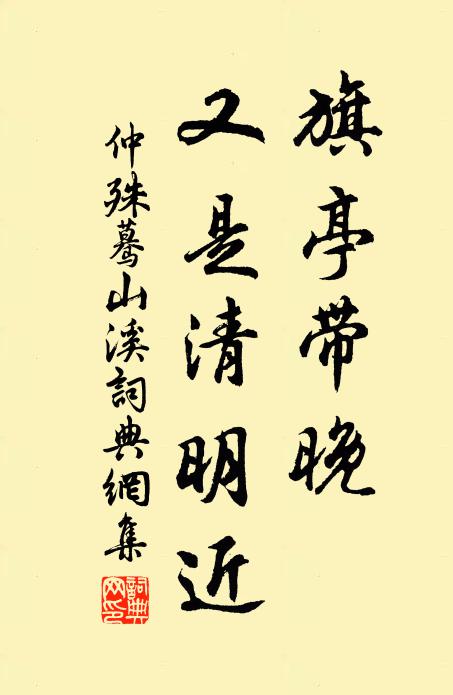 旗亭帶晚
又是清明近
仲殊驀山溪詞典網集
詞典网印